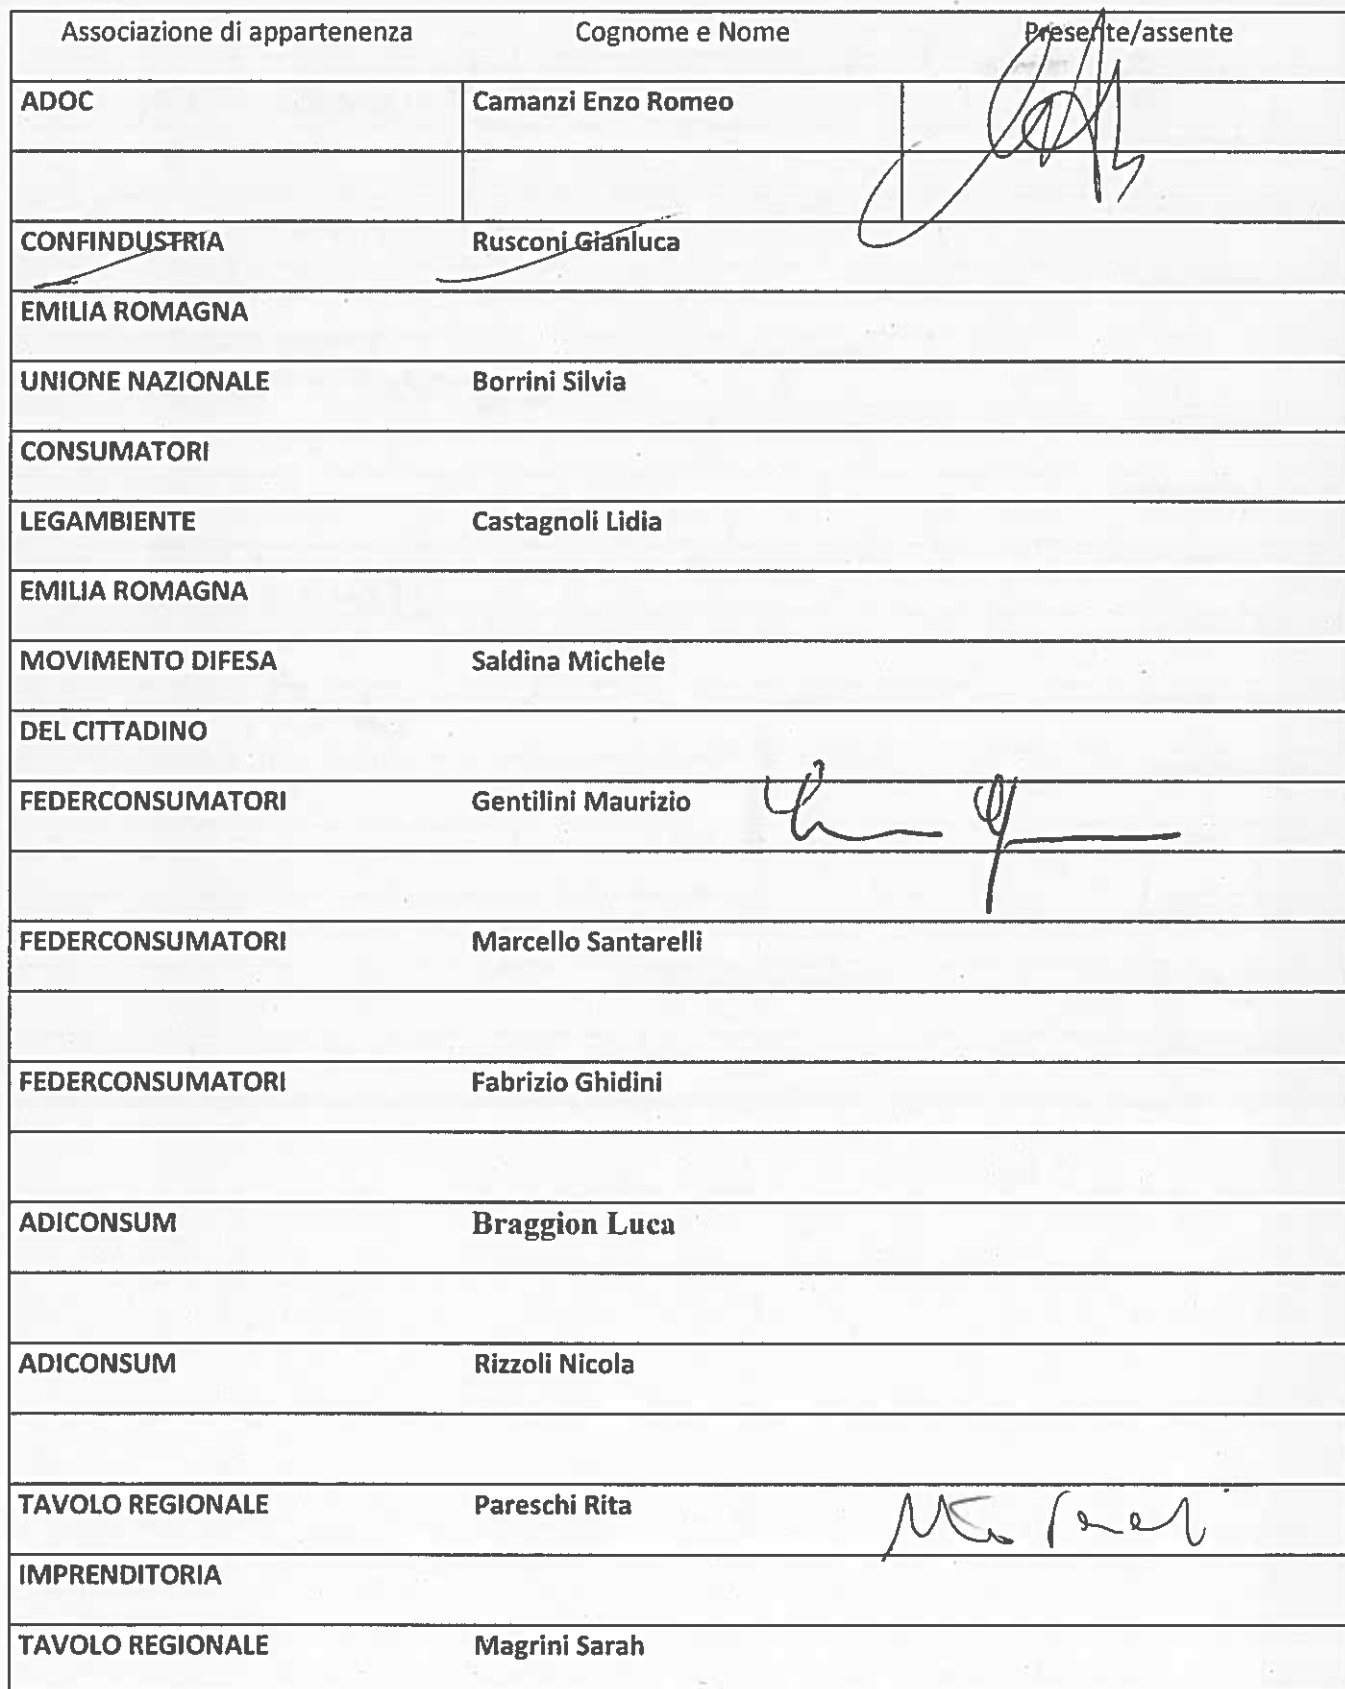 Associazione di appartenenza Cognome e Nome Presente/assente
ADOC Camanzi Enzo Romeo
CONFINDUSTRIA Rusconi Gianluca
EMILIA ROMAGNA
UNIONE NAZIONALE Borrini Silvia
CONSUMATORI
LEGAMBIENTE Castagnoli Lidia
EMILIA ROMAGNA
MOVIMENTO DIFESA Saldina Michele
DEL CITTADINO
FEDERCONSUMATORI Gentilini Maurizio
FEDERCONSUMATORI Marcello Santarelli
FEDERCONSUMATORI Fabrizio Ghidini
ADICONSUM Braggion Luca
ADICONSUM Rizzoli Nicola
TAVOLO REGIONALE Pareschi Rita
IMPRENDITORIA
TAVOLO REGIONALE Magrini Sarah